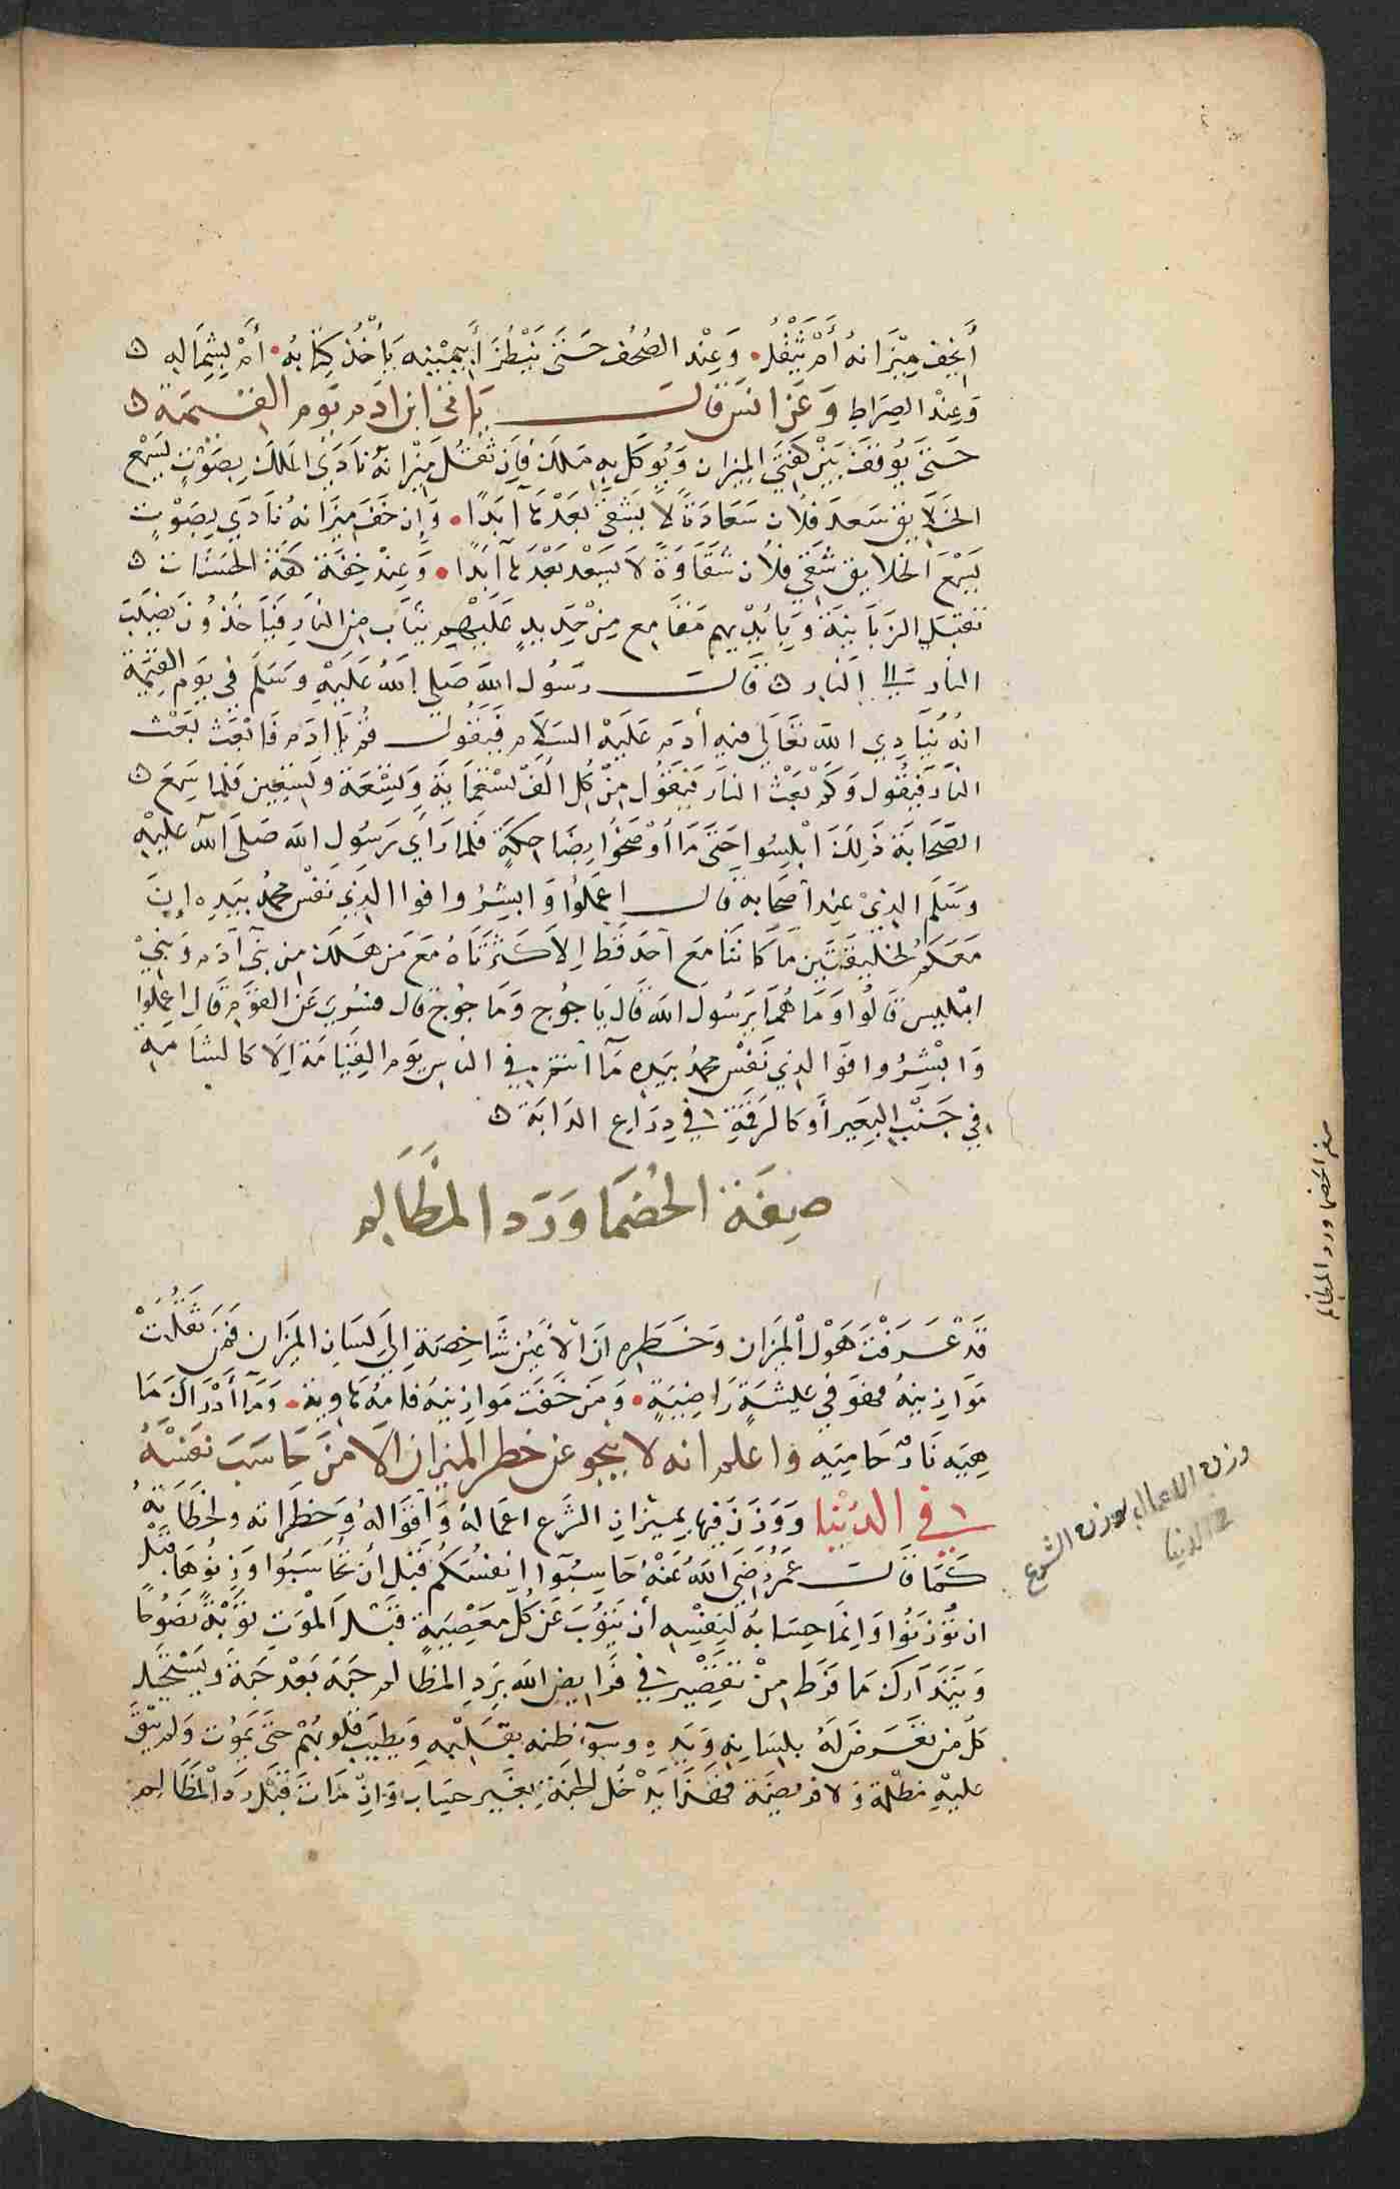 أيخف ميزانه أم يثقل وعند الصحف حتى ينظر أبيمينه يأخذ كتابه أم بشماله
وعند الصراط وعن انس قال يؤتى ابن ادم يوم القيمة
حتى يوقف بين كفتي الميزان ويوكل به ملك فإن ثقل ميزانه نادى الملك بصوت يسمع
الخلايق سعد فلان سعادة لا يشقى بعدها أبدا وإن خف ميزانه نادي بصوت
يسمع الخلايق شقي فلان شقاوة لا يسعد بعدها أبدا وعند خفة كفة الحسنات
تقبل الزبانية وبايديهم مقامع من حديد عليهم ثياب من النار فيأخذون نصيب
النار الى النار قال رسول الله صلى الله عليه وسلم في يوم القيمة
انه ينادي الله تعالى فيه أدم عليه السلام فيقول قم يا ادم فابعث بعث
النار فيقول وكم بعث النار فيقول من كل الف تسعماية وتسعة وتسعين فلما سمع
الصحابة ذلك ابلسوا حتى ما أوضحوا بضاحكة فلما رأي رسول الله صلى الله عليه
وسلم الذي عند أصحابه قال اعملوا وابشروا فوا الذي نفس محمد بيده إن
معكم لخليقتين ما كانتا مع أحد قط إلا كثرتاه مع من هلك من بني آدم وبني
ابليس قالوا وما هما يرسول الله قال ياجوج وماجوج قال فسري عن القوم قال اعملوا
وابشروا فوالذي نفس محمد بيده ما أنتم في الناس يوم القيامة إلا كالشامة
في جنب البعير أو كالرقمة في ذراع الدابة
صفة الخصما ورد المظالم
قد عرفت هول الميزان وخطره ان الأعين شاخصة إلى لسان الميزان فمن ثقلت
موازينه فهو في عيشة راضية ومن خفت موازينه فامه هاوية وما أدراك ما
هيه نار حاميه واعلم انه لا ينجو عن خطر الميزان الا من حاسب نفسه
في الدنيا ووزن فيها بميزان الشرع اعماله وأقواله وخطراته ولحظاته
كما قال عمر رضي الله عنه حاسبوا انفسكم قبل أن تحاسبوا وزنوها قبل
ان توزنوا وانما حسابه لنفسه أن يتوب عن كل معصية قبل الموت توبة نصوحا
ويتدارك ما فرط من تقصير في فرايض الله برد المظالم حبة بعد حبة ويستحل
كل من تعرض له بلسانه ويده وسوء ظنه بقلبه ويطيب قلوبهم حتى يموت ولم يبق
عليه مظلمة ولا فريضة فهذا يدخل الجنة بغير حساب وإن مات قبل رد المظالم
صفة الخصما ورد المظالم
وزن الاعمال بوزن الشرع
في الدنيا